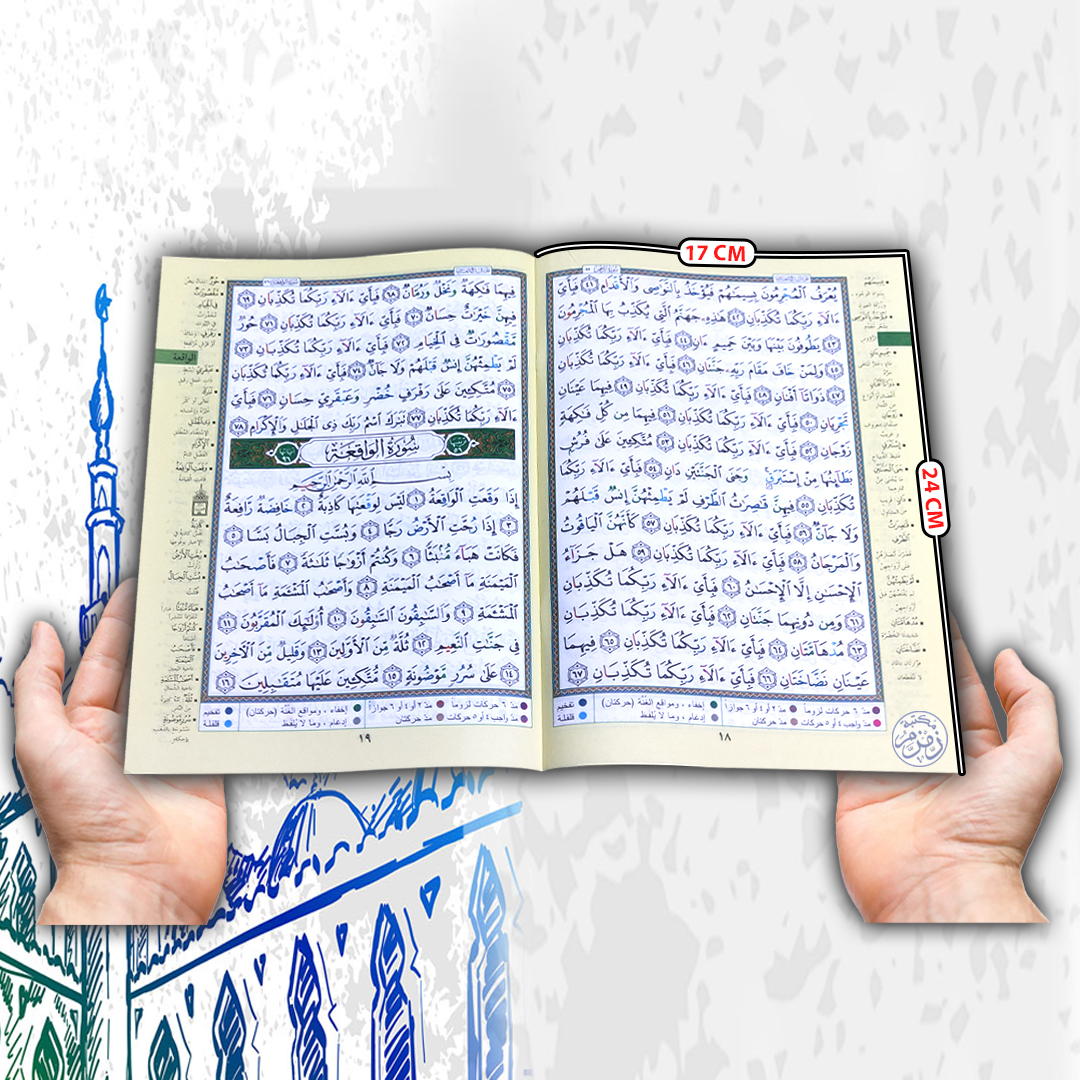 17 CM
24 CM
يُعْرَفُ الْمُجْرِمُونَ بِسِيمَاهُمْ فَيُؤْخَذُ بِالنَّوَاصِي وَالْأَقْدَامِ ٤١ فَبِأَيِّ
ءَالَآءِ رَبِّكُمَا تُكَذِّبَانِ ٤٢ هَٰذِهِ جَهَنَّمُ الَّتِي يُكَذِّبُ بِهَا الْمُجْرِمُونَ
٤٣ يَطُوفُونَ بَيْنَهَا وَبَيْنَ حَمِيمٍ ءَانٍ ٤٤ فَبِأَيِّ ءَالَآءِ رَبِّكُمَا تُكَذِّبَانِ
٤٥ وَلِمَنْ خَافَ مَقَامَ رَبِّهِ جَنَّتَانِ ٤٦ فَبِأَيِّ ءَالَآءِ رَبِّكُمَا تُكَذِّبَانِ
٤٧ ذَوَاتَآ أَفْنَانٍ ٤٨ فَبِأَيِّ ءَالَآءِ رَبِّكُمَا تُكَذِّبَانِ ٤٩ فِيهِمَا عَيْنَانِ
تَجْرِيَانِ ٥٠ فَبِأَيِّ ءَالَآءِ رَبِّكُمَا تُكَذِّبَانِ ٥١ فِيهِمَا مِن كُلِّ فَاكِهَةٍ
زَوْجَانِ ٥٢ فَبِأَيِّ ءَالَآءِ رَبِّكُمَا تُكَذِّبَانِ ٥٣ مُتَّكِـِٔينَ عَلَىٰ فُرُشٍ
بَطَآئِنُهَا مِنْ إِسْتَبْرَقٍ وَجَنَى الْجَنَّتَيْنِ دَانٍ ٥٤ فَبِأَيِّ ءَالَآءِ رَبِّكُمَا
تُكَذِّبَانِ ٥٥ فِيهِنَّ قَاصِرَاتُ الطَّرْفِ لَمْ يَطْمِثْهُنَّ إِنسٌ قَبْلَهُمْ
وَلَا جَآنٌّ ٥٦ فَبِأَيِّ ءَالَآءِ رَبِّكُمَا تُكَذِّبَانِ ٥٧ كَأَنَّهُنَّ الْيَاقُوتُ
وَالْمَرْجَانُ ٥٨ فَبِأَيِّ ءَالَآءِ رَبِّكُمَا تُكَذِّبَانِ ٥٩ هَلْ جَزَآءُ
الْإِحْسَانِ إِلَّا الْإِحْسَانُ ٦٠ فَبِأَيِّ ءَالَآءِ رَبِّكُمَا تُكَذِّبَانِ
٦١ وَمِن دُونِهِمَا جَنَّتَانِ ٦٢ فَبِأَيِّ ءَالَآءِ رَبِّكُمَا تُكَذِّبَانِ
٦٣ مُدْهَآمَّتَانِ ٦٤ فَبِأَيِّ ءَالَآءِ رَبِّكُمَا تُكَذِّبَانِ ٦٥ فِيهِمَا
عَيْنَانِ نَضَّاخَتَانِ ٦٦ فَبِأَيِّ ءَالَآءِ رَبِّكُمَا تُكَذِّبَانِ ٦٧
مد ٦ حركات لزوماً مد ٢ أو ٤ أو ٦ جوازاً إخفاء ، ومواقع الغُنَّة (حركتان) تفخيم
مد واجب ٤ أو ٥ حركات مد حركتان إدغام ، وما لا يُلفَظ قلقلة
١٨
مكتبة
زمزم
فِيهِمَا فَاكِهَةٌ وَنَخْلٌ وَرُمَّانٌ ٦٨ فَبِأَيِّ ءَالَآءِ رَبِّكُمَا تُكَذِّبَانِ ٦٩
فِيهِنَّ خَيْرَاتٌ حِسَانٌ ٧٠ فَبِأَيِّ ءَالَآءِ رَبِّكُمَا تُكَذِّبَانِ ٧١ حُورٌ
مَّقْصُورَاتٌ فِي الْخِيَامِ ٧٢ فَبِأَيِّ ءَالَآءِ رَبِّكُمَا تُكَذِّبَانِ ٧٣
لَمْ يَطْمِثْهُنَّ إِنسٌ قَبْلَهُمْ وَلَا جَآنٌّ ٧٤ فَبِأَيِّ ءَالَآءِ رَبِّكُمَا تُكَذِّبَانِ
٧٥ مُتَّكِـِٔينَ عَلَىٰ رَفْرَفٍ خُضْرٍ وَعَبْقَرِيٍّ حِسَانٍ ٧٦ فَبِأَيِّ
ءَالَآءِ رَبِّكُمَا تُكَذِّبَانِ ٧٧ تَبَارَكَ اسْمُ رَبِّكَ ذِي الْجَلَالِ وَالْإِكْرَامِ ٧٨
سُورَةُ الْوَاقِعَةِ
بِسْمِ اللَّهِ الرَّحْمَٰنِ الرَّحِيمِ
إِذَا وَقَعَتِ الْوَاقِعَةُ ١ لَيْسَ لِوَقْعَتِهَا كَاذِبَةٌ ٢ خَافِضَةٌ رَّافِعَةٌ
٣ إِذَا رُجَّتِ الْأَرْضُ رَجًّا ٤ وَبُسَّتِ الْجِبَالُ بَسًّا ٥
فَكَانَتْ هَبَآءً مُّنۢبَثًّا ٦ وَكُنتُمْ أَزْوَاجًا ثَلَاثَةً ٧ فَأَصْحَابُ
الْمَيْمَنَةِ مَآ أَصْحَابُ الْمَيْمَنَةِ ٨ وَأَصْحَابُ الْمَشْـَٔمَةِ مَآ أَصْحَابُ
الْمَشْـَٔمَةِ ٩ وَالسَّابِقُونَ السَّابِقُونَ ١٠ أُولَٰٓئِكَ الْمُقَرَّبُونَ ١١
فِي جَنَّاتِ النَّعِيمِ ١٢ ثُلَّةٌ مِّنَ الْأَوَّلِينَ ١٣ وَقَلِيلٌ مِّنَ الْآخِرِينَ
١٤ عَلَىٰ سُرُرٍ مَّوْضُونَةٍ ١٥ مُّتَّكِـِٔينَ عَلَيْهَا مُتَقَابِلِينَ ١٦
مد ٦ حركات لزوماً مد ٢ أو ٤ أو ٦ جوازاً إخفاء ، ومواقع الغُنَّة (حركتان) تفخيم
مد واجب ٤ أو ٥ حركات مد حركتان إدغام ، وما لا يُلفَظ قلقلة
١٩
الواقعة